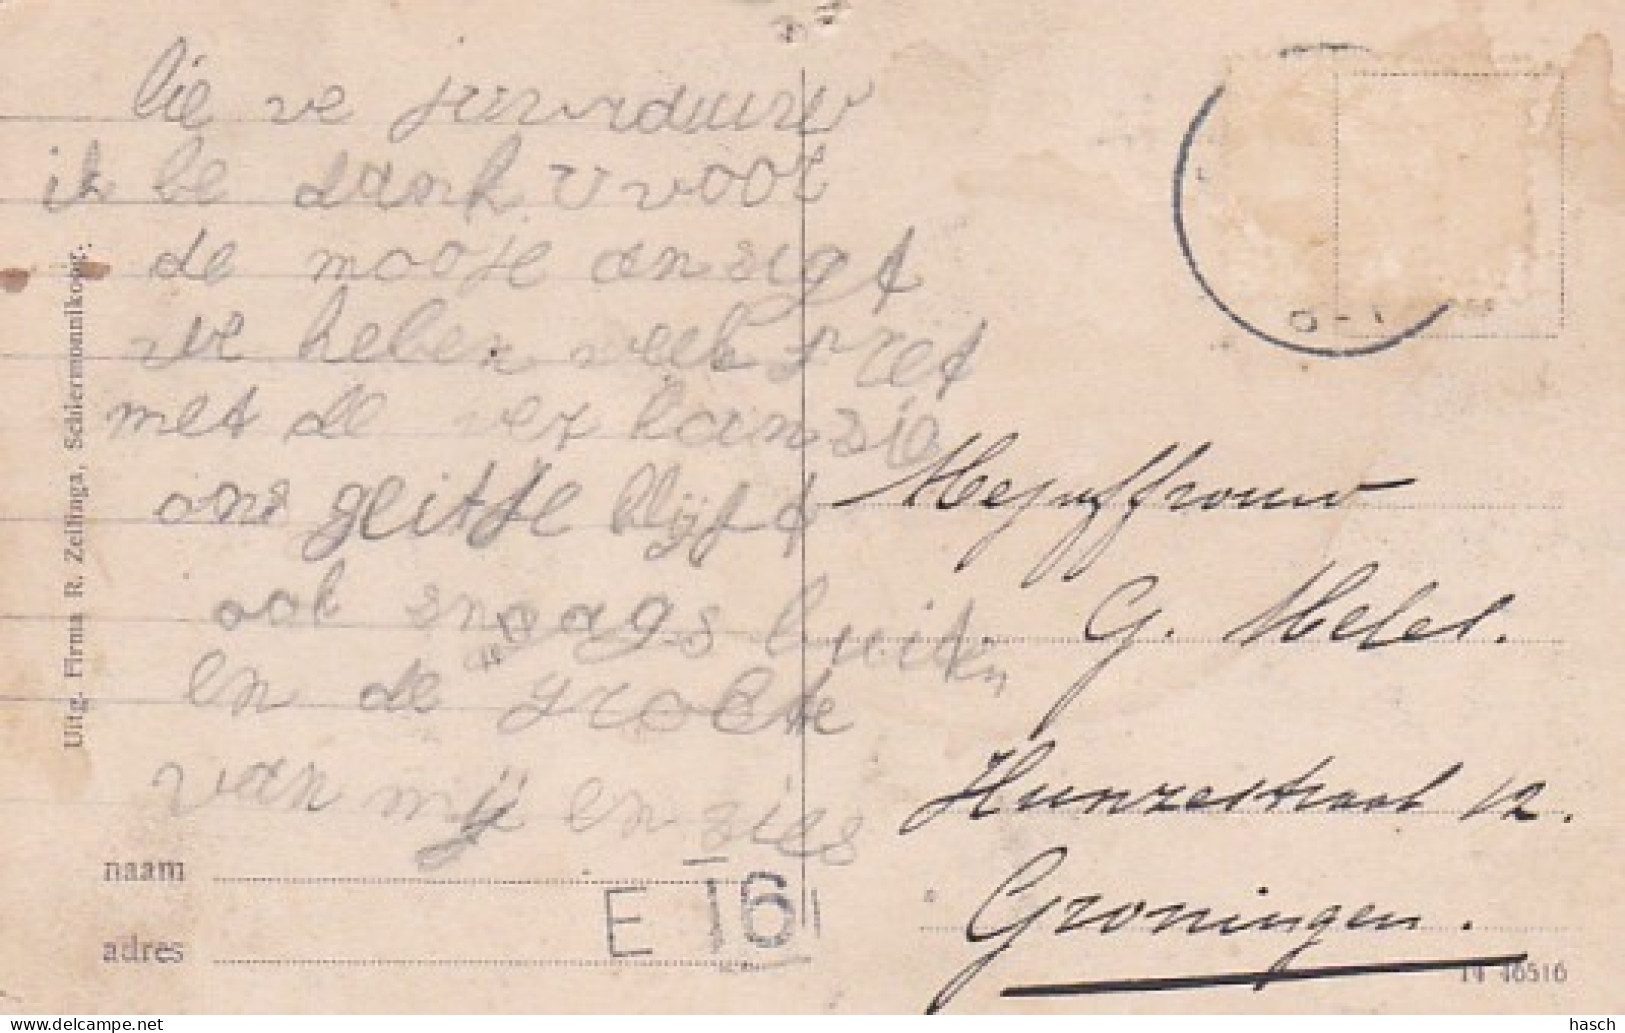 lie ve juwvduuw
ik be dank U voor
de mooje anzigt
we heben veel pret
met de ver kanzie
ons geitje blijft
ook snaags buiten
en de groete
van mij en zies
Uitg. Firma R. Zeilinga, Schiermonnikoog.
naam
adres
E 16
Mejuffrouw
G. Mebel.
Hunzestraat 12.
Groningen.
14 46516
hasch